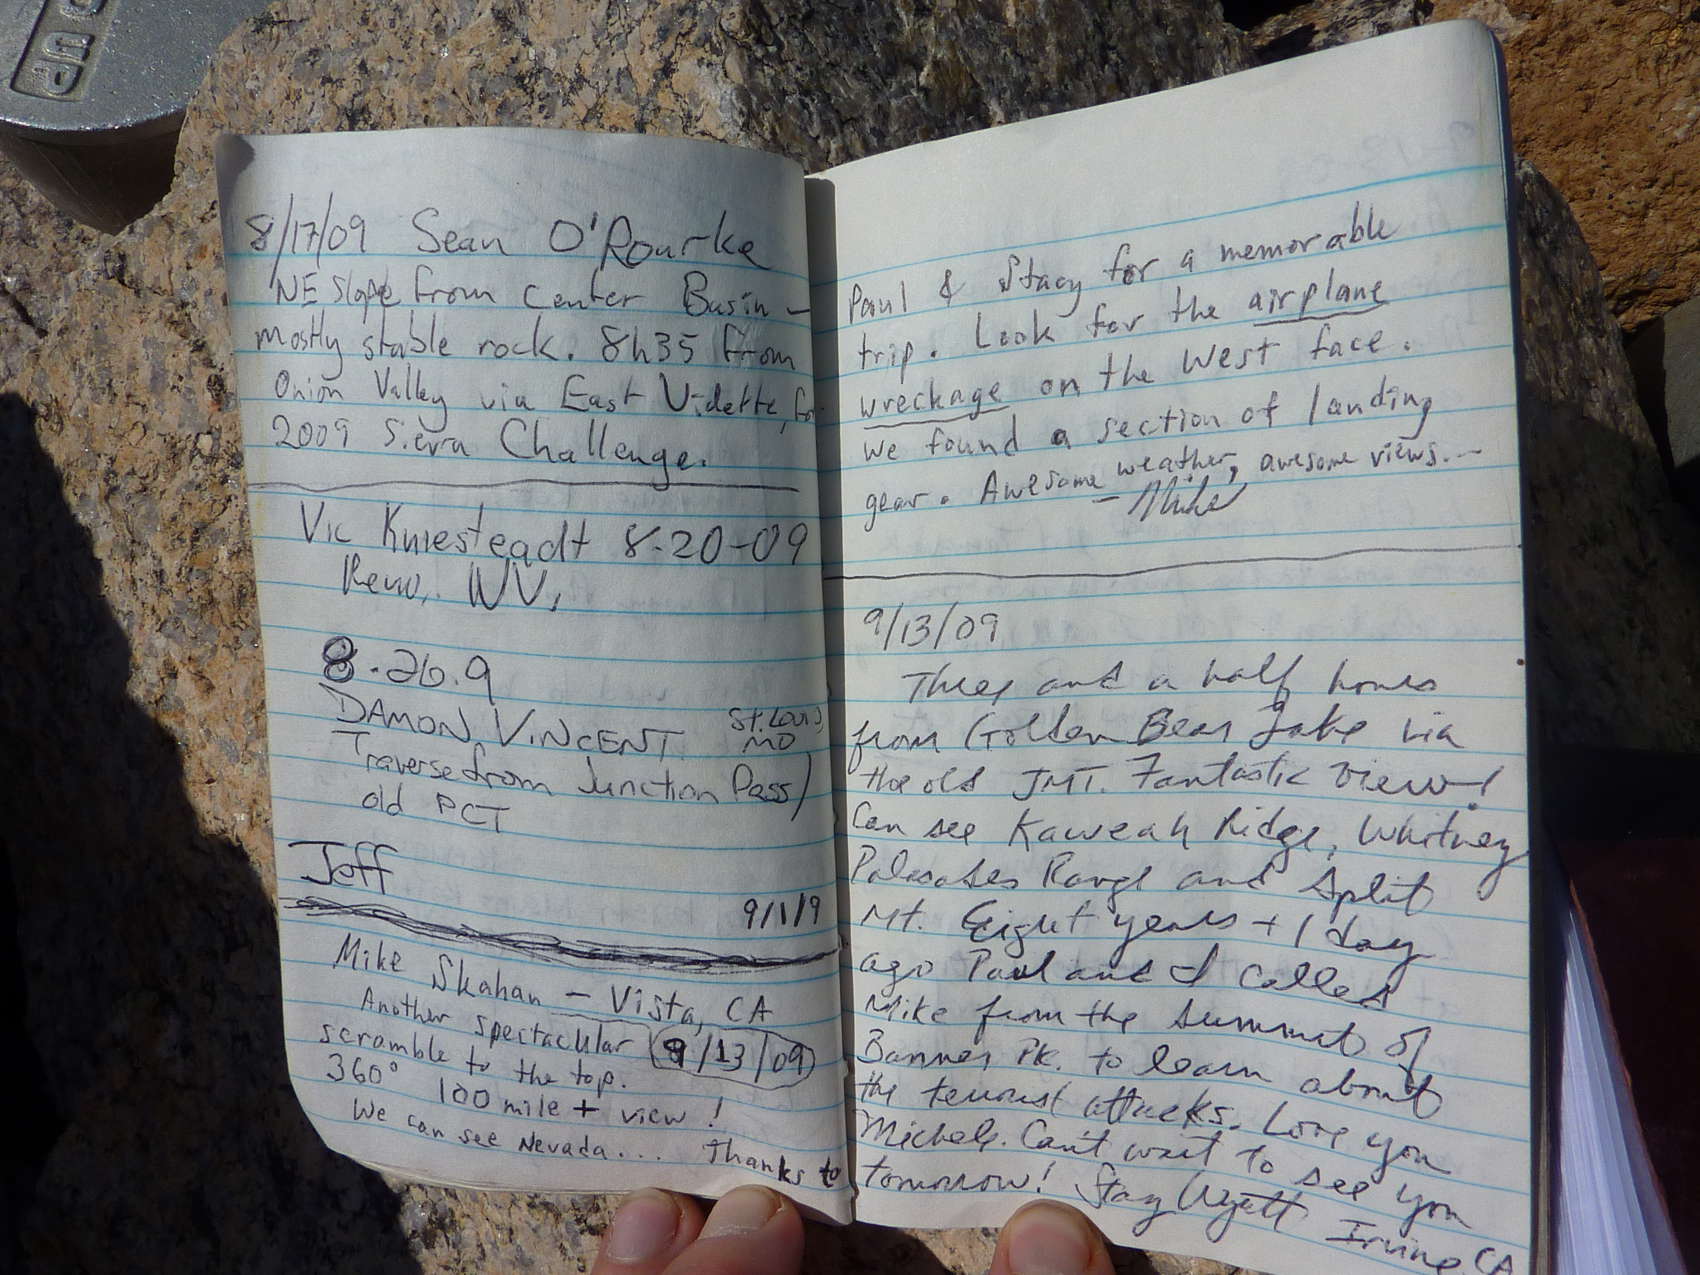 8/17/09 Sean O'Rourke
NE slope from Center Basin –
mostly stable rock. 8h35 from
Onion Valley via East Vidette, for
2009 Sierra Challenge.
Vic Kniesteadt 8-20-09
Reno, NV,
8.26.9
DAMON VINCENT St. Louis,
MO
Traverse from Junction Pass/
old PCT
Jeff
9/1/9
Mike Skahan – Vista, CA
Another spectacular 9/13/09
scramble to the top.
360° 100 mile + view!
We can see Nevada... Thanks to
Paul & Stacy for a memorable
trip. Look for the airplane
wreckage on the West face.
We found a section of landing
gear. Awesome weather, awesome views...
– Mike
9/13/09
Three and a half hours
from Golden Bear Lake via
the old JMT. Fantastic view!
Can see Kaweah Ridge, Whitney
Palasades Range and Split
Mt. Eight years + 1 day
ago Paul and I called
Mike from the summit of
Banner Pk. to learn about
the terrorist attacks. Love you
Michele. Can't wait to see you
tomorrow! Stacy Wyatt
Irvine CA